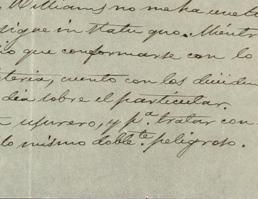 Williams no me ha vuelto
sigue in statu quo. Mientr
que conformarse con lo
teria, cuento con los dividen
dia sobre el particular.
usurero, y pª tratar con
lo mismo doblete. peligroso.